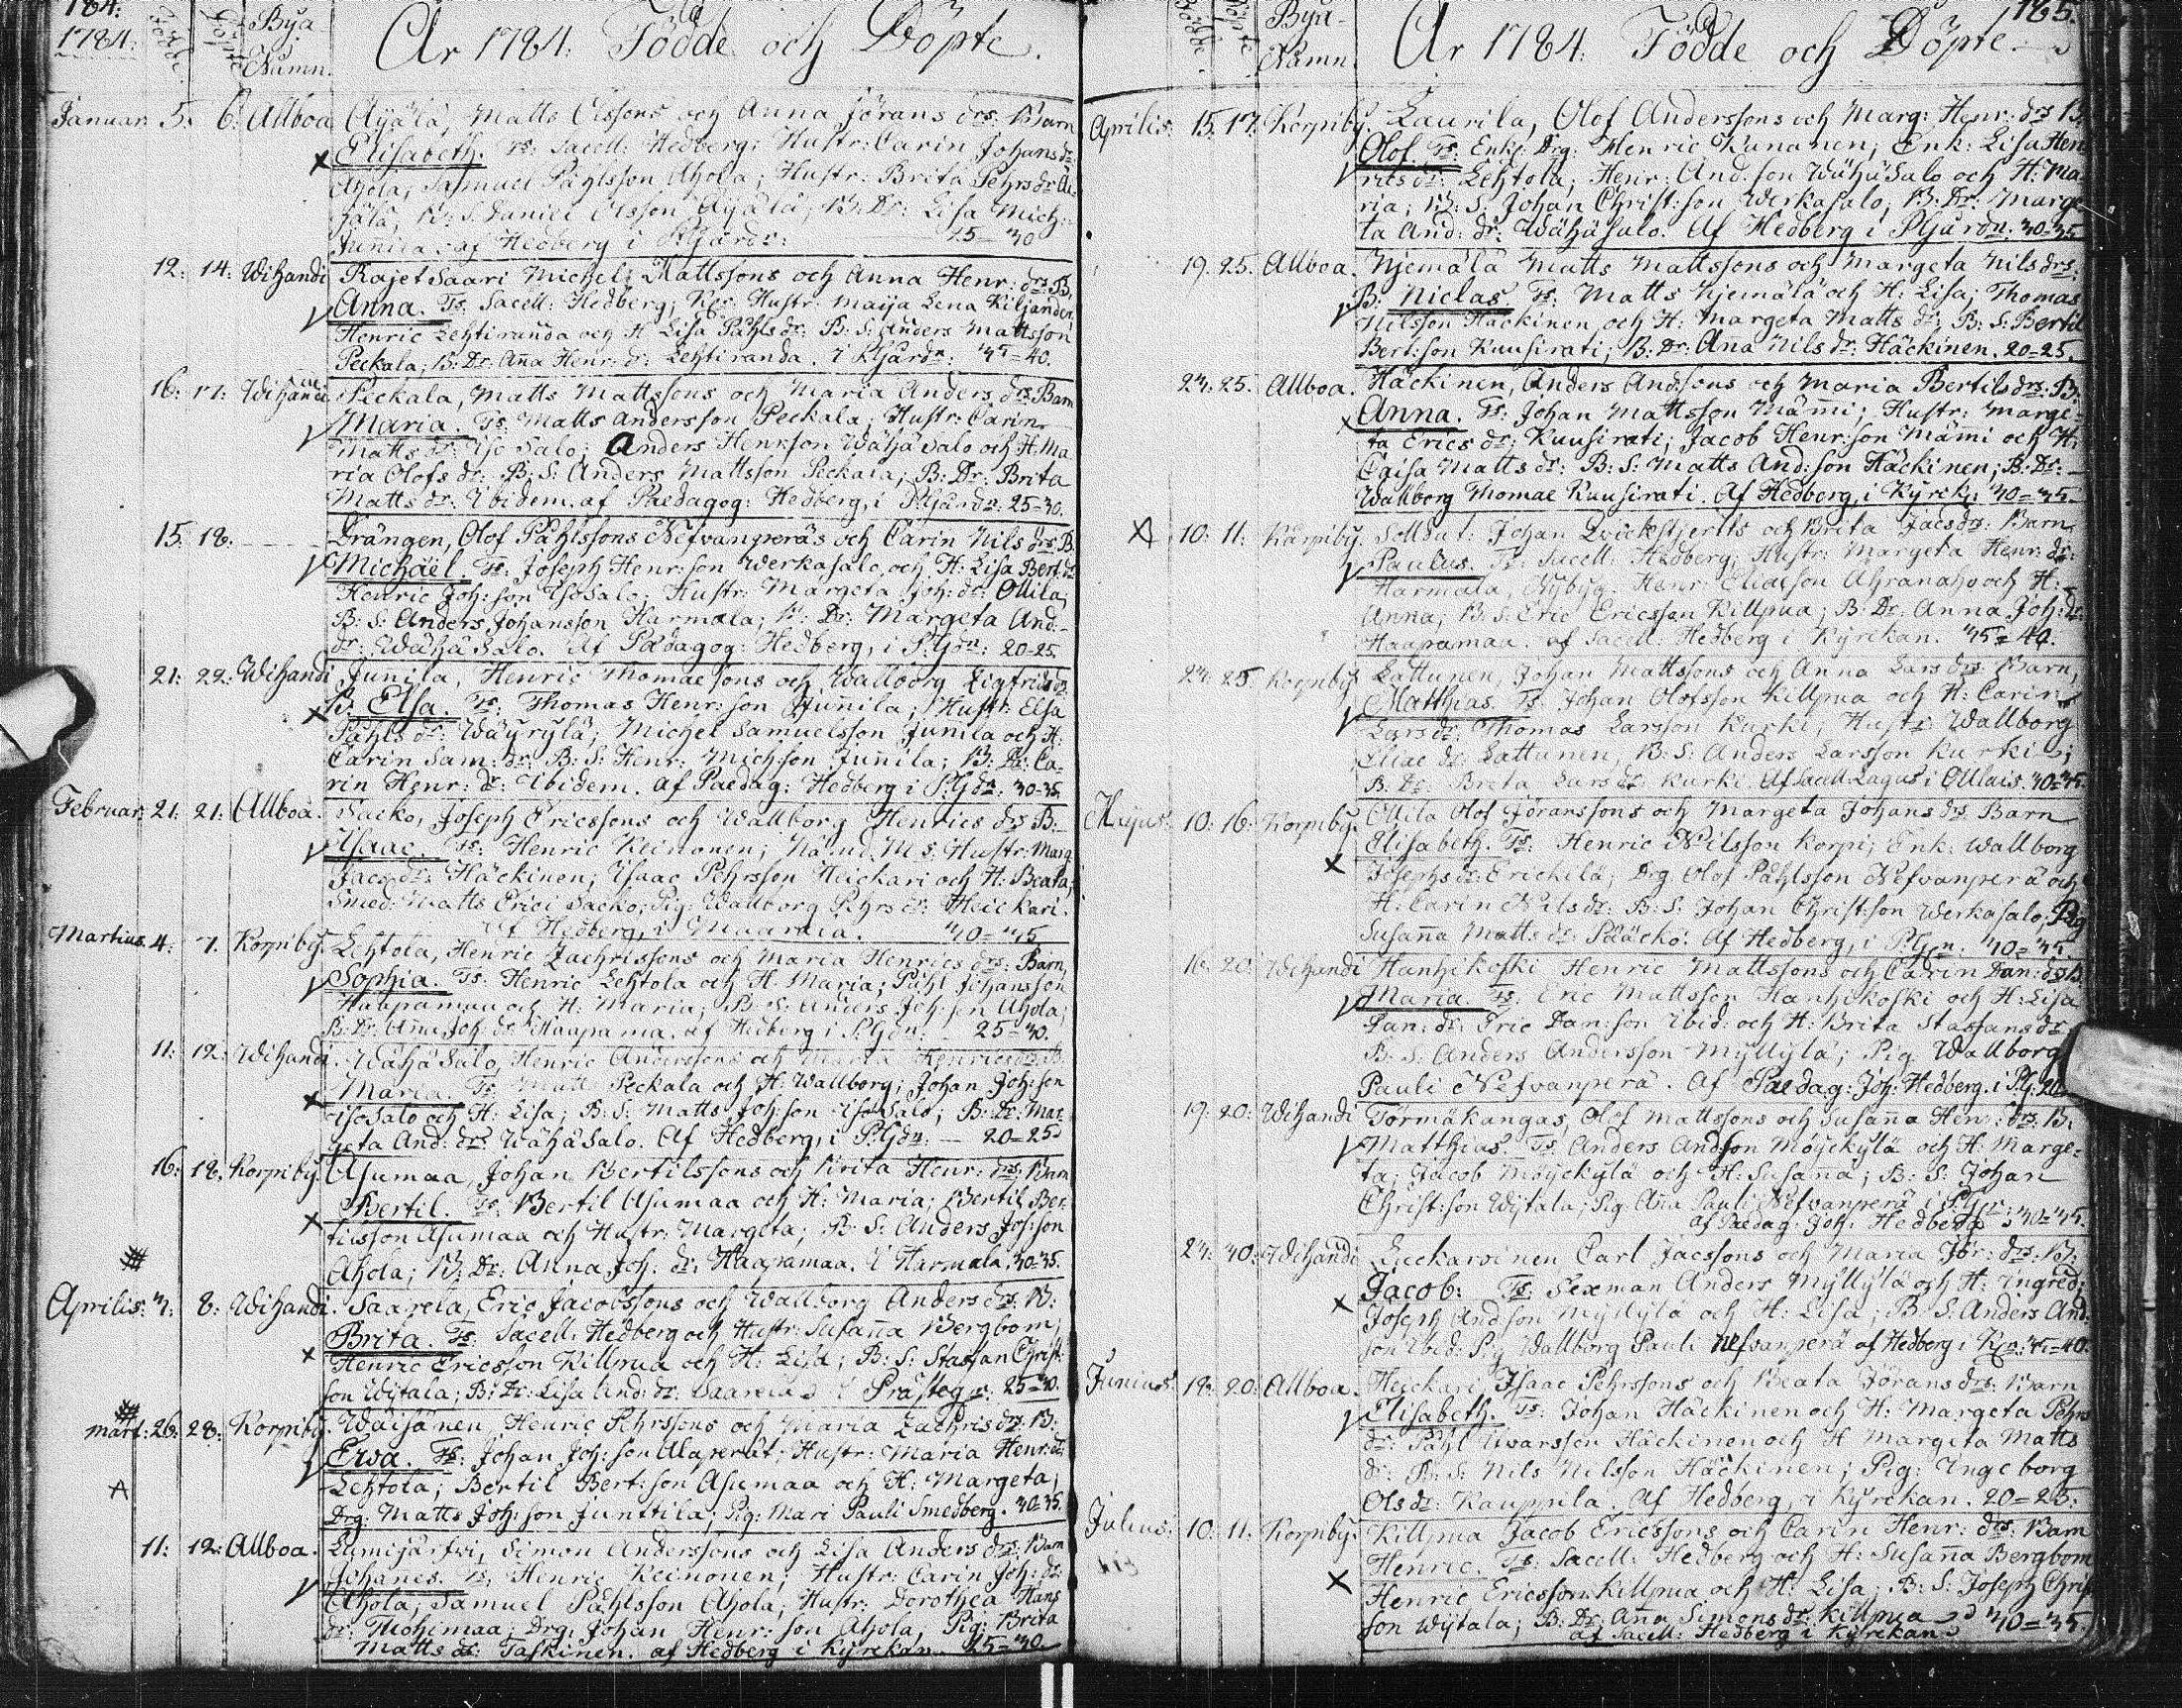 184.
1784. Födde. Döpte. Bya Namn. År 1784. Födde och Döpte.
Januar: 5. 6. Allboa Äÿälä, Matts Olssons och Anna Jörans drs. Barn
Elisabeth. Ts: Sacell: Hedberg; Hustr: Carin Johans dr.
Ahola, Samuel Påhlsson Ahola; Hustr: Brita Pehrs dr Äi-
jälä, B: S. Daniel Olsson Äÿälä; B: Dr: Lisa Mich:
Junila. af Hedberg i P:Gårdn: 25=30
12: 14: Wihandi Rajet Saari Michel Mattssons och Anna Henr: drs B.
Anna. Ts. Sacell: Hedberg; Hustr: Maija Lena Kiljander
Henric Lehtiranda och H Lisa Påhls dr: B: S: Anders Mattsson
Peckala; B: Dr: Aña Henr: dr: Lehtiranda. i P:Gårdn: 35=40.
16: 17: Wihandi. Peckala, Matts Mattssons och Maria Anders drs Barn
Maria. Ts. Matts Andersson Peckala; Hustr: Carin
Matts dr: Iso Salo; Anders Henr:son Wähä Salo och H. Ma
ria Olofs dr: B: S: Anders Mattsson Peckala; B: Dr: Brita
Matts dr: Ibidem. af Paedagog: Hedberg, i P:Gårdn: 25=30.
15: 18. Drängen, Olof Påhlssons Nefvanperäs och Carin Nils drs B.
Michaël. Ts: Joseph Henr:son Werkasalo, och H: Lisa Bert: dr
Henric Joh:son Iso Salo; Hustr: Margeta Joh: dr: Ollila;
B: S: Anders Johansson Harmala; B: Dr: Margeta And:
dr: Wähä Salo. Af Paedagog: Hedberg, i P:Gdn: 20=25
21: 22: Wihandi Junila, Henric Thomaesons och Wallborg Sigfrids dr
B: Elsa. Ts: Thomas Henr:son Juñila; Hustr: Elsa
Påhls dr: Wäÿrÿlä; Michel Samuelsson Junila och H:
Carin Sam: dr: B: S: Henr: Mich:son Juñila; B: Dr: Ca-
rin Henr: dr: Ibidem. af Paedag: Hedberg i P:Gdn: 30=35
Februar: 21: 21: Allboa. Sacko, Joseph Ericssons och Wallborg Henrics drs B:
Isaac. Ts: Henric Keinonen; Hustr: Marg
Jacs dr: Häckinen; Isaac Pehrsson Heickari och H: Beata;
Smed: Matts Erici Sacko; Pig: Wallborg Pehrs dr: Heickari.
Af Hedberg, i 30=35
Martius. 4: 7. Korpibÿ. Lehtola, Henric Zachrissons och Maria Henrics drs: Barn,
Sophia. Ts: Henric Lehtola och H. Maria; Påhl Johansson
Haapamaa och H: Maria; B: S: Anders Joh:son Ahola;
B: Dr: Aña Joh: dr Haapama. af Hedberg i P:Gdn: 25=30.
11: 12: Wihandi. Wähä Salo, Henric Anderssons och Maria Henrics drs B:
Maria. Ts Matts Peckala och H: Wallborg; Johan Joh:son
Iso Salo och H: Lisa; B: S: Matts Joh:son Iso Salo; B: Dr: Mar-
geta And: dr: Wähä Salo. Af Hedberg, i P:Gdn: — 20=25
16: 18. Korpibÿ. Asumaa, Johan Bertilssons och Brita Henr: drs: Barn
Bertil. Ts: Bertil Asumaa och H: Maria; Bertil Ber-
tilsson Asumaa och Hustr: Margeta; B: S: Anders Joh:son
Ahola; B: Dr: Anna Joh: dr: Haapamaa. i Harmala. 30=35.
Aprilis: 7: 8: Wihandi. Saarela, Eric Jacobssons och Wallborg Anders drs: B:
Brita. Ts: Sacell: Hedberg och Hustr: Susaña Bergbom;
Henric Ericsson Killpua och H: Lisa; B: S: Staffan Christ:
son Wÿtala; B: Dr: Lisa And: dr: Saarela i Prästeg:n: 25=30.
mart: 26: 28: Korpibÿ. Waisänen, Henric Pehrssons och Maria Zachris drs. B:
Ewa. Ts: Johan Joh:son Alaperät; Hustr: Maria Henr: dr
Lehtola; Bertil Bert:son Asumaa och H: Margeta;
Drg: Matts Joh:son Junttila; Pig: Mari Pauli Smedberg. 30=35.
11: 12: Allboa. Lumijärfvi, Simon Anderssons och Lisa Anders drs: Barn
Johañes. Ts, Henric Keinonen; Hustr: Carin Joh: dr:
Ahola; Samuel Påhlsson Ahola; Hustr: Dorothea Hans
dr: Tiiohimaa; Drg: Johan Henr:son Ahola, Pig: Brita
Matts dr: Taskinen. af Hedberg i Kÿrckan. 25=30
185.
Födde. Döpte. Bya Namn. År 1784. Födde och Döpte.
Aprilis: 15. 17. Korpibÿ. Laurila, Olof Anderssons och Marg: Henr: drs B.
Olof. Ts: Enkl. Drg: Henric Kunanen; Enk: Lisa Hen
rics dr: Lehtola; Henr: And:son Wähä Salo och H: Ma
ria; B: S: Johan Christ:son Werkasalo; B: Dr: Marge
ta And: dr: Wähä Salo. Af Hedberg i P:Gårdn: 30=35
19: 25. Allboa. Njemälä Matts Mattssons och Margeta Nils drs:
B: Niclas. Ts: Matts Njemälä och H: Lisa; Thomas
Nilsson Häckinen, och H: Margeta Matts dr; B: S: Bertil
Bert:son Kuusirati; B: Dr: Ana Nils dr: Häckinen. 20=25.
23: 25. Allboa. Häckinen, Anders And:sons och Maria Bertils drs: B:
Anna. Ts: Johan Mattsson Mäñni; Hustr: Marge-
ta Erics dr: Kuusirati; Jacob Henr:son Mäñni och H:
Caisa Matts dr: B: S: Matts And:son Häckinen; B: Dr: —
Wallborg Thomae Kuusirati. Af Hedberg, i Kÿrck: 30=35.
10: 11: Kårpibÿ. Solldat: Johan Qvickstjertts och Brita Jacs drs: Barn
Paulus. Ts: Sacell: Hedberg; Hustr: Margeta Henr: dr:
Harmala, Nÿbÿg: Henr: Eliaeson Ahranaho och H:
Anna; B: S: Eric Ericsson Killpua; B: Dr: Anna Joh: dr
Haapamaa. af Sacell: Hedberg i Kÿrckan. 35=40.
23: 25. Korpibÿ. Lattunen, Johan Mattssons och Anna Lars drs: Barn,
Matthias. Ts: Johan Olofsson Killpua och H: Carin
Lars dr: Thomas Larsson Kurki; Hustr: Wallborg
Eliae dr: Lattunen; B: S: Anders Larsson Kurki;
B: Dr: Breta Lars dr Kurki. Af Sacell: Lagus i Oulais. 30=35.
Majus: 10: 16: Korpibÿ. Ollila Olof Jöranssons och Margeta Johans drs Barn
Elisabeth. Ts: Henric Nilsson Korpi; Enk: Wallborg
Josephs dr: Erickilä; Drg Olof Påhlsson Nefvanperä och
H: Carin Nils dr: B: S: Johan Christ:son Werkasalo; Pig
Susaña Matts dr: Pläckö. Af Hedberg, i P:Gn: 30=35.
16: 20: Wihandi Hanhikoski Henric Mattssons och Carin Dan: drs B
Maria. Ts: Eric Mattsson Hanhikoski och H: Lisa
Dan: dr: Eric Dan:son Ibid: och H: Brita Staffans dr
B: S: Anders Andersson Mÿllÿlä; Pig Wallborg
Pauli Nefvanperä. Af Paedag: Joh: Hedberg. i P:G: 20
19: 20: Wihandi Törmäkangas, Olof Mattssons och Susaña Henr: drs: B:
Matthias. Ts: Anders And:son Möÿckÿlä och H. Marge-
ta; Jacob Möÿckÿlä och H: Susaña; B: S: Johan
Christ:son Wÿtala; Pig Aña Pauli Nefvanperä i P:Gn:
af Paedag: Joh: Hedberg 30=35.
24: 30: Wihandi Luckaroinen Carl Jacssons och Maria Jör: drs: B:
Jacob: Ts: Sexman Anders Mÿllÿlä och H: Ingred;
Joseph And:son Mÿllÿlä och H: Lisa; B: S: Anders And:
son Ibid: Pig Wallborg Pauli Nefvanperä af Hedberg i K:n: 35=40.
Junius. 18: 20: Allboa. Heickari Isaac Pehrssons och Beata Jörans drs: Barn
Elisabeth. Ts: Johan Häckinen och H: Margeta Pehrs
dr: Påhl Iwarsson Häckinen och H Margeta Matts
dr: B: S: Nils Nilsson Häckinen; Pig: Ingeborg
Ols dr: Kauppila. Af Hedberg, i Kÿrckan. 20=25.
Julius: 10: 11: Korpibÿ. Killpua Jacob Ericssons och Carin Henr: drs: Barn
Henric. Ts: Sacell: Hedberg och H: Susaña Bergbom
Henric Ericsson Killpua och H: Lisa; B: S: Joseph Christ
son Wÿtala; B: Dr: Aña Simons dr: Killpua 30=35.
af Sacell: Hedberg i Kÿrckan